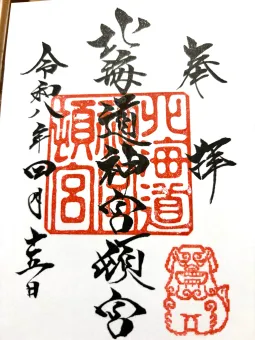 奉拝
北海道神宮頓宮
北海道神宮頓宮
令和八年四月十五日